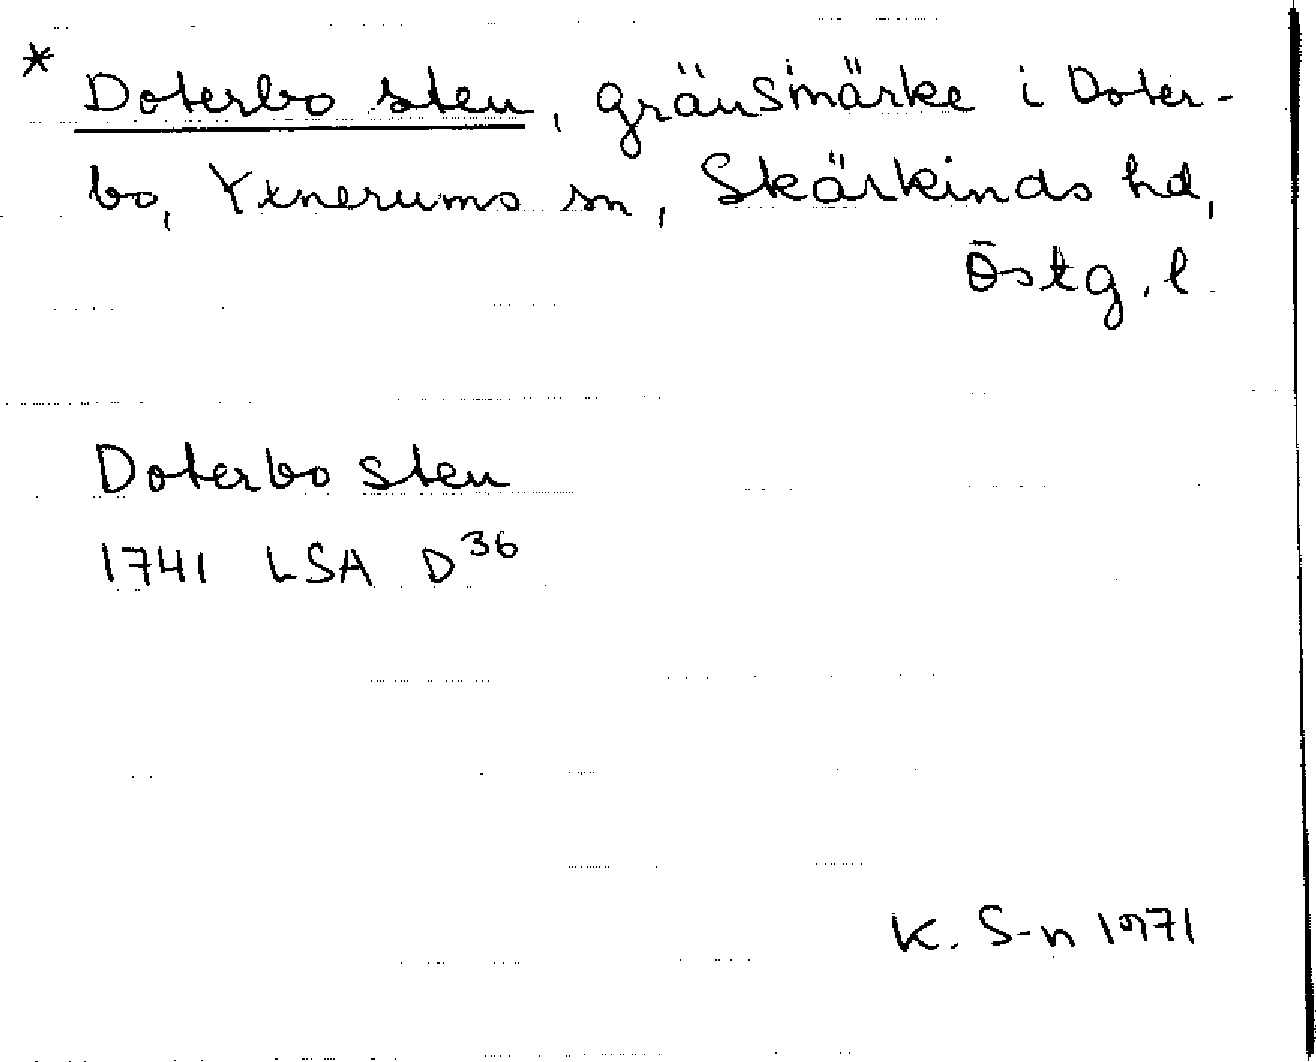 * Doterbo sten, gränsmärke i Doter-
bo, Yxnerums sn, Skärkinds hd,
Östg. l.
Doterbo sten
1741 LSA D³⁶
K. S-n 1971